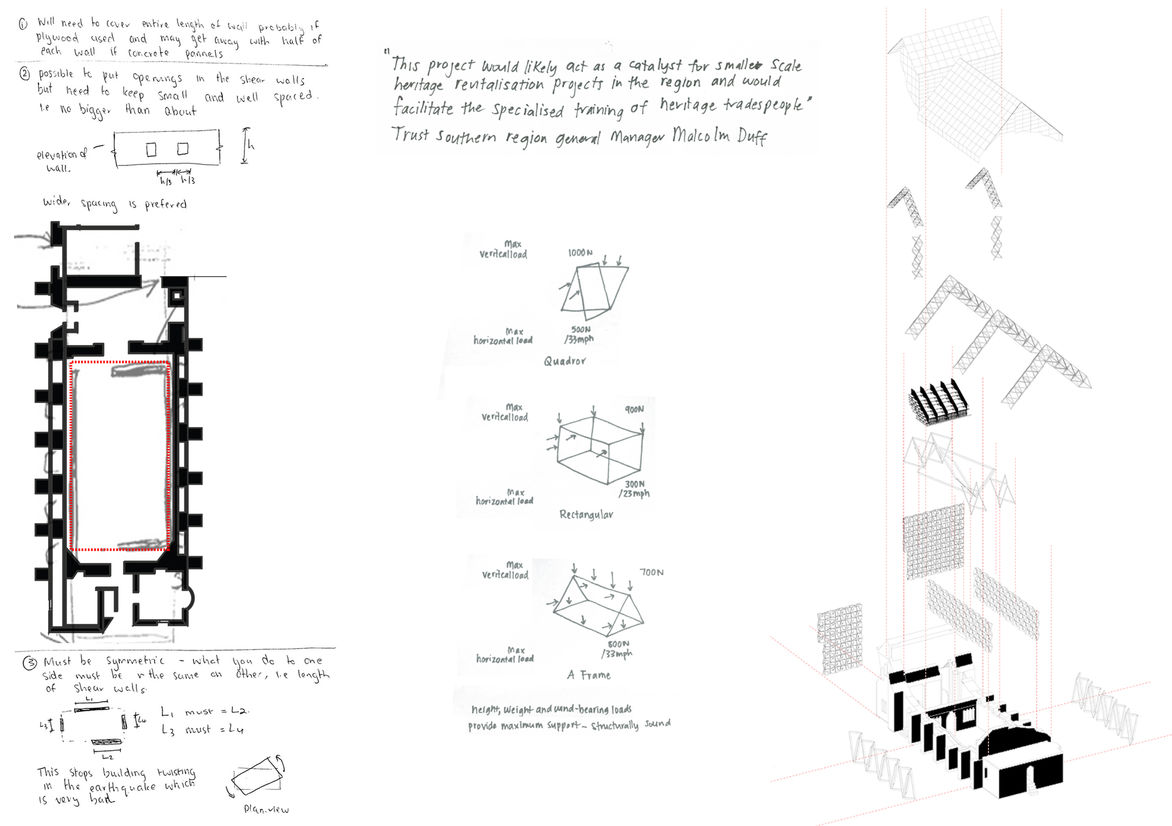 ① Will need to cover entire length of wall probably if
plywood used and may get away with half of
each wall if concrete pannels
② possible to put openings in the shear walls
but need to keep small and well spaced.
i.e no bigger than about
elevation of
wall.
h
h/3 h/3
wider spacing is prefered
③ Must be symmetric - what you do to one
side must be the same on other, i.e length
of shear walls.
L1
L3
L4
L2
L1 must = L2.
L3 must = L4
This stops building twisting
in the earthquake which
is very bad
plan view
"This project would likely act as a catalyst for smaller scale
heritage revitalisation projects in the region and would
facilitate the specialised training of heritage tradespeople"
Trust Southern region general Manager Malcolm Duff
Max
vertical load
1000N
Max
horizontal load
500N
/33mph
Quadror
Max
vertical load
900N
Max
horizontal load
300N
/23mph
Rectangular
Max
vertical load
700N
Max
horizontal load
500N
/33mph
A Frame
height, weight and wind-bearing loads
provide maximum support - structurally sound